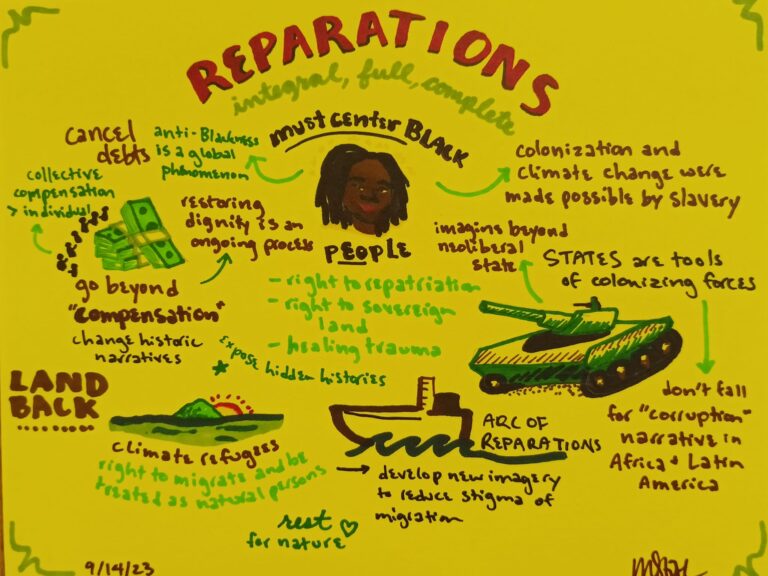 REPARATIONS
integral, full, complete
must center BLACK
PEOPLE
cancel
debts
anti-Blackness
is a global
phenomenon
collective
compensation
> individual
restoring
dignity is an
ongoing process
go beyond
"compensation"
change historic
narratives
colonization and
climate change were
made possible by slavery
imagine beyond
neoliberal
state
STATES are tools
of colonizing forces
- right to repatriation
- right to sovereign
land
- healing trauma
* expose hidden histories
don't fall
for "corruption"
narrative in
Africa + Latin
America
LAND
BACK
climate refugees
right to migrate and be
treated as natural persons
ARC OF
REPARATIONS
develop new imagery
to reduce stigma of
migration
rest
for nature
9/14/23